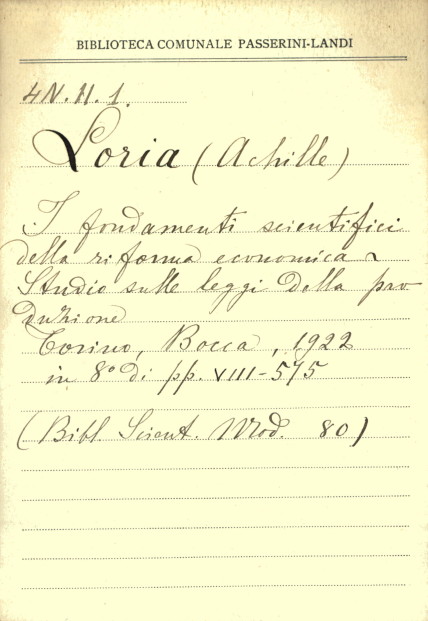 BIBLIOTECA COMUNALE PASSERINI-LANDI
4N.H.1.
Loria (Achille)
I fondamenti scientifici
della riforma economica -
Studio sulle leggi della pro
duzione
Torino, Bocca, 1922
in 8° di pp. VIII-575
(Bibl. Scient. Mod. 80)